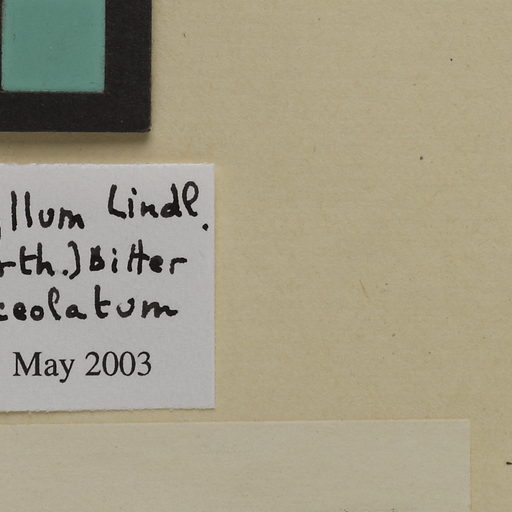 llum Lindl.
rth.) Bitter
ceolatum
May 2003